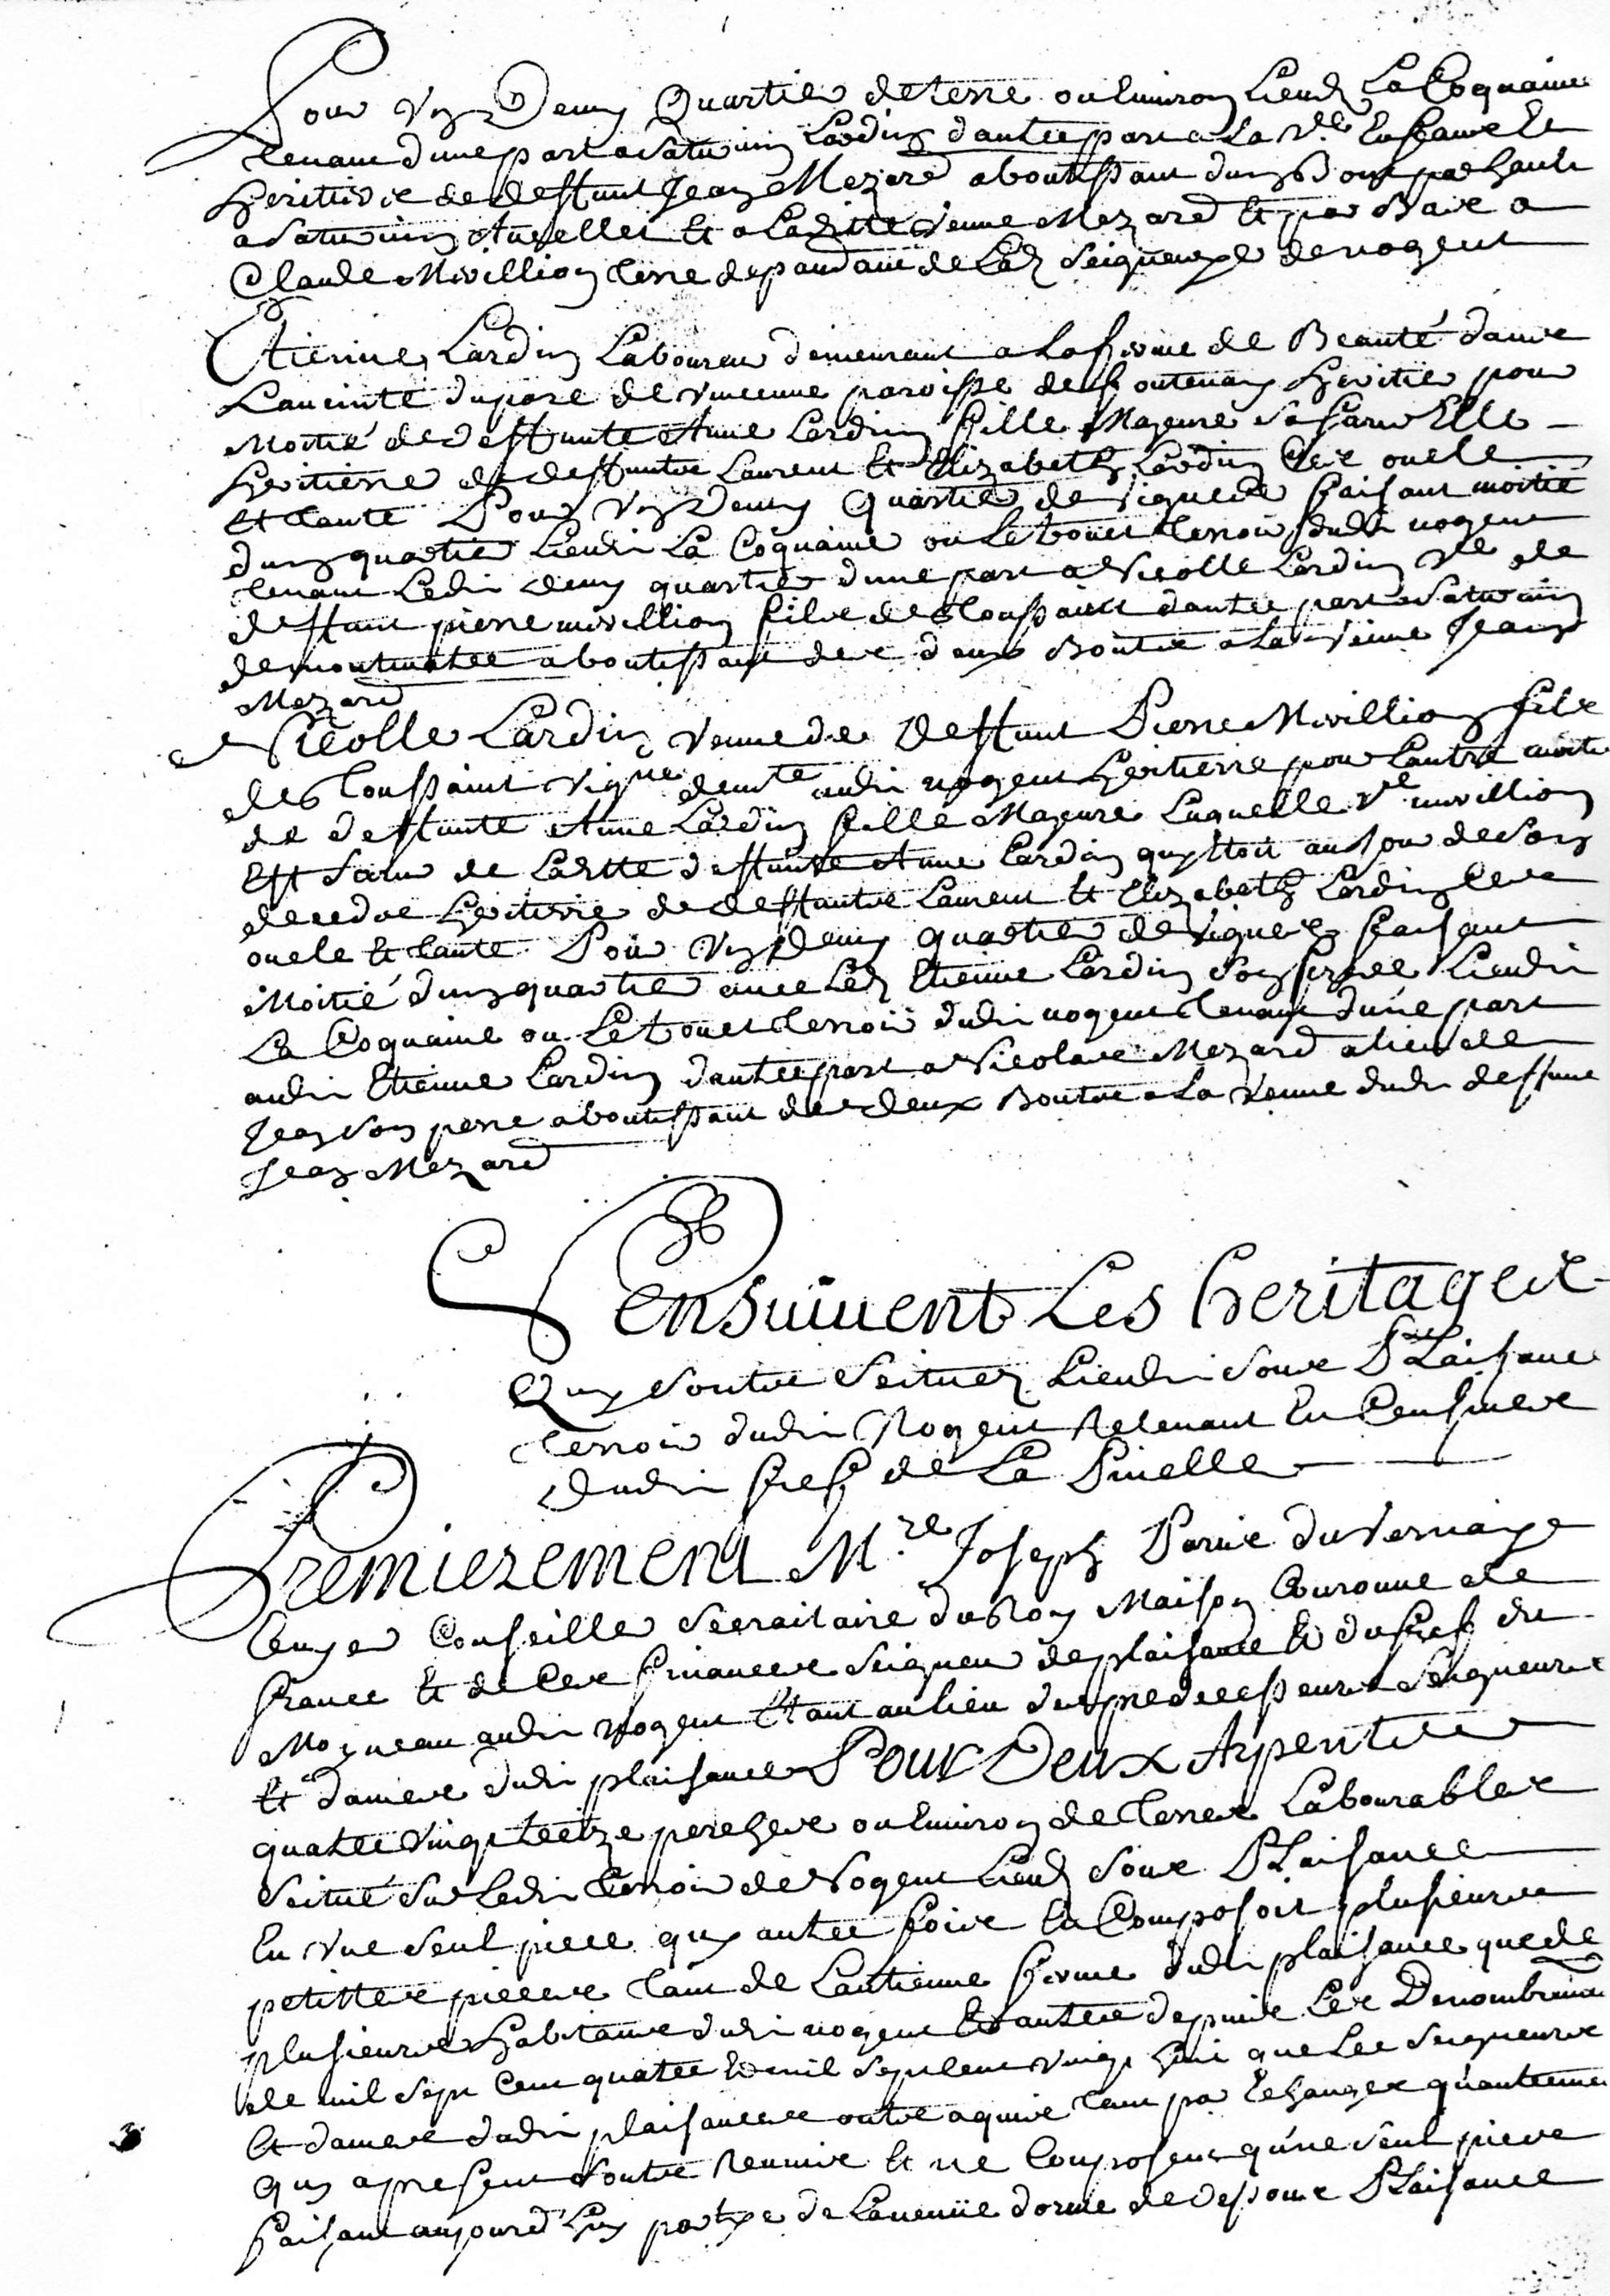 Pour Un Demy Quartier de terre ou Environ Lieudt La Coquaine
tenant d'une part a Saturnin Lardin d'autre part a La Vve Enfans Et
heritiers de deffunt Jean Mezard aboutissant d'un Bout par hault
a Saturnin et a Laditte Veuve Mezard Et par Bas a
Claude Mivillion terre depandant de Lad Seigneurye de nogent
Etienne Lardin Laboureur demeurant a La ferme de Beauté dans
L'anceinte du parc de Vincenne paroisse de fontenay heritier pour
Moitié de deffunte Anne Lardin fille Majeure Sa sœur Elle
heritiere de deffunts Laurent Et Elizabeth Lardin Ses oncle
Et tante Pour Un Demy Quartier de Vignes faisant moitié
d'un quartier Lieudit La Coquaine ou Le bouet terroir dudit nogent
tenant Ledit demy quartier d'une part a Nicolle Lardin Vve de
deffunt pierre mivillion fils de Toussaint d'autre part a Saturnin
demontmatre aboutissant des deux Bouts a La Veuve Jean
Mezard
Nicolle Lardin Veuve de deffunt Pierre Mivillion fils
de Toussaint Vigneron demte audit nogent heritiere pour L'autre moitie
de deffunte Anne Lardin fille Majeure Laquelle Vve mivillion
Est Sœur de Laditte deffunte Anne Lardin qui Etoit au Jour de Son
decedes heritiere de deffunts Laurent Et Elizabeth Lardin Ses
oncle Et tante Pour Un Demy quartier de Vignes faisant
Moitié d'un quartier avec Led Etienne Lardin Son frere Lieudit
La Coquaine ou Le bouet terroir dudit nogent tenant d'une part
audit Etienne Lardin d'autre part a Nicolas Mezard a lieu de
Jean Son pere aboutissant des deux Bouts a La Veuve dudit deffunt
Jean Mezard
Ensuivent Les heritages
Quy Sonts Scituez Lieudit Sous Plaisance
terroir dudit Nogent Relevant En Censives
dudit fief de La Pinelle
Premierement Mre Joseph Paris du Vernaye
Ecuyer Conseiller Secraitaire du Roy Maison Couronne de
france Et de Ces finances Seigneur de plaisance Et du fief du
Moyneau audit nogent Etant au lieu des predecesseurs Seigneurs
Et dames dudit plaisance Pour Deux Arpents
quatre vingt treize perches ou Environ de terres Labourables
Scitué Sur Ledit terroir de Nogent Lieudt Sous Plaisance
En une Seul piece quy autre fois En Composoit plusieurs
petittes pieces tant de L'antienne ferme dudit plaisance que de
plusieurs habitans dudit nogent Et autres depuis Les Denombrement
de mil Sept Cent quatre Et mil Sept Cent Vingt huit que Les Seigneurs
Et dames dudit plaisance onts aquis tant par Echanges qu'autrement
quy a present Sonts Reunies Et ne Composent qu'une Seul piece
faisant aujourd'huy partye de L'avenüe d'orme de dessous Plaisance